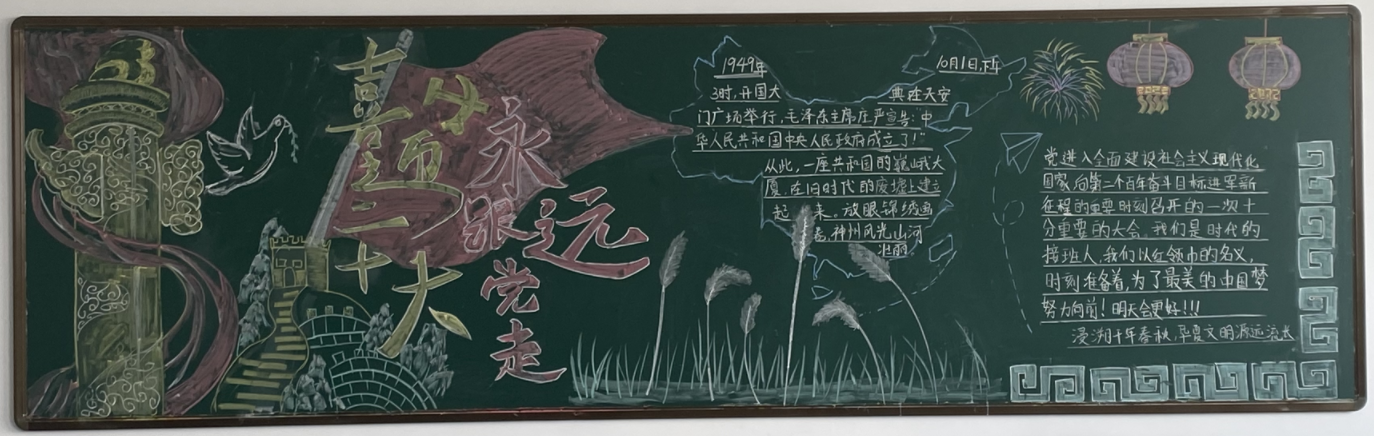 喜迎二十大
永远
跟党走
1949年 10月1日,下午
3时,开国大 典在天安
门广场举行,毛泽东主席庄严宣告:“中
华人民共和国中央人民政府成立了!”
从此,一座共和国的巍峨大
厦,在旧时代的废墟上建立
起来。放眼锦绣画
卷,神州风光山河
壮丽
党进入全面建设社会主义现代化
国家,向第二个百年奋斗目标进军新
征程的重要时刻召开的一次十
分重要的大会。我们是时代的
接班人,我们以红领巾的名义,
时刻准备着,为了最美的中国梦
努力向前!明天会更好!!!
浸润千年春秋,华夏文明源远流长